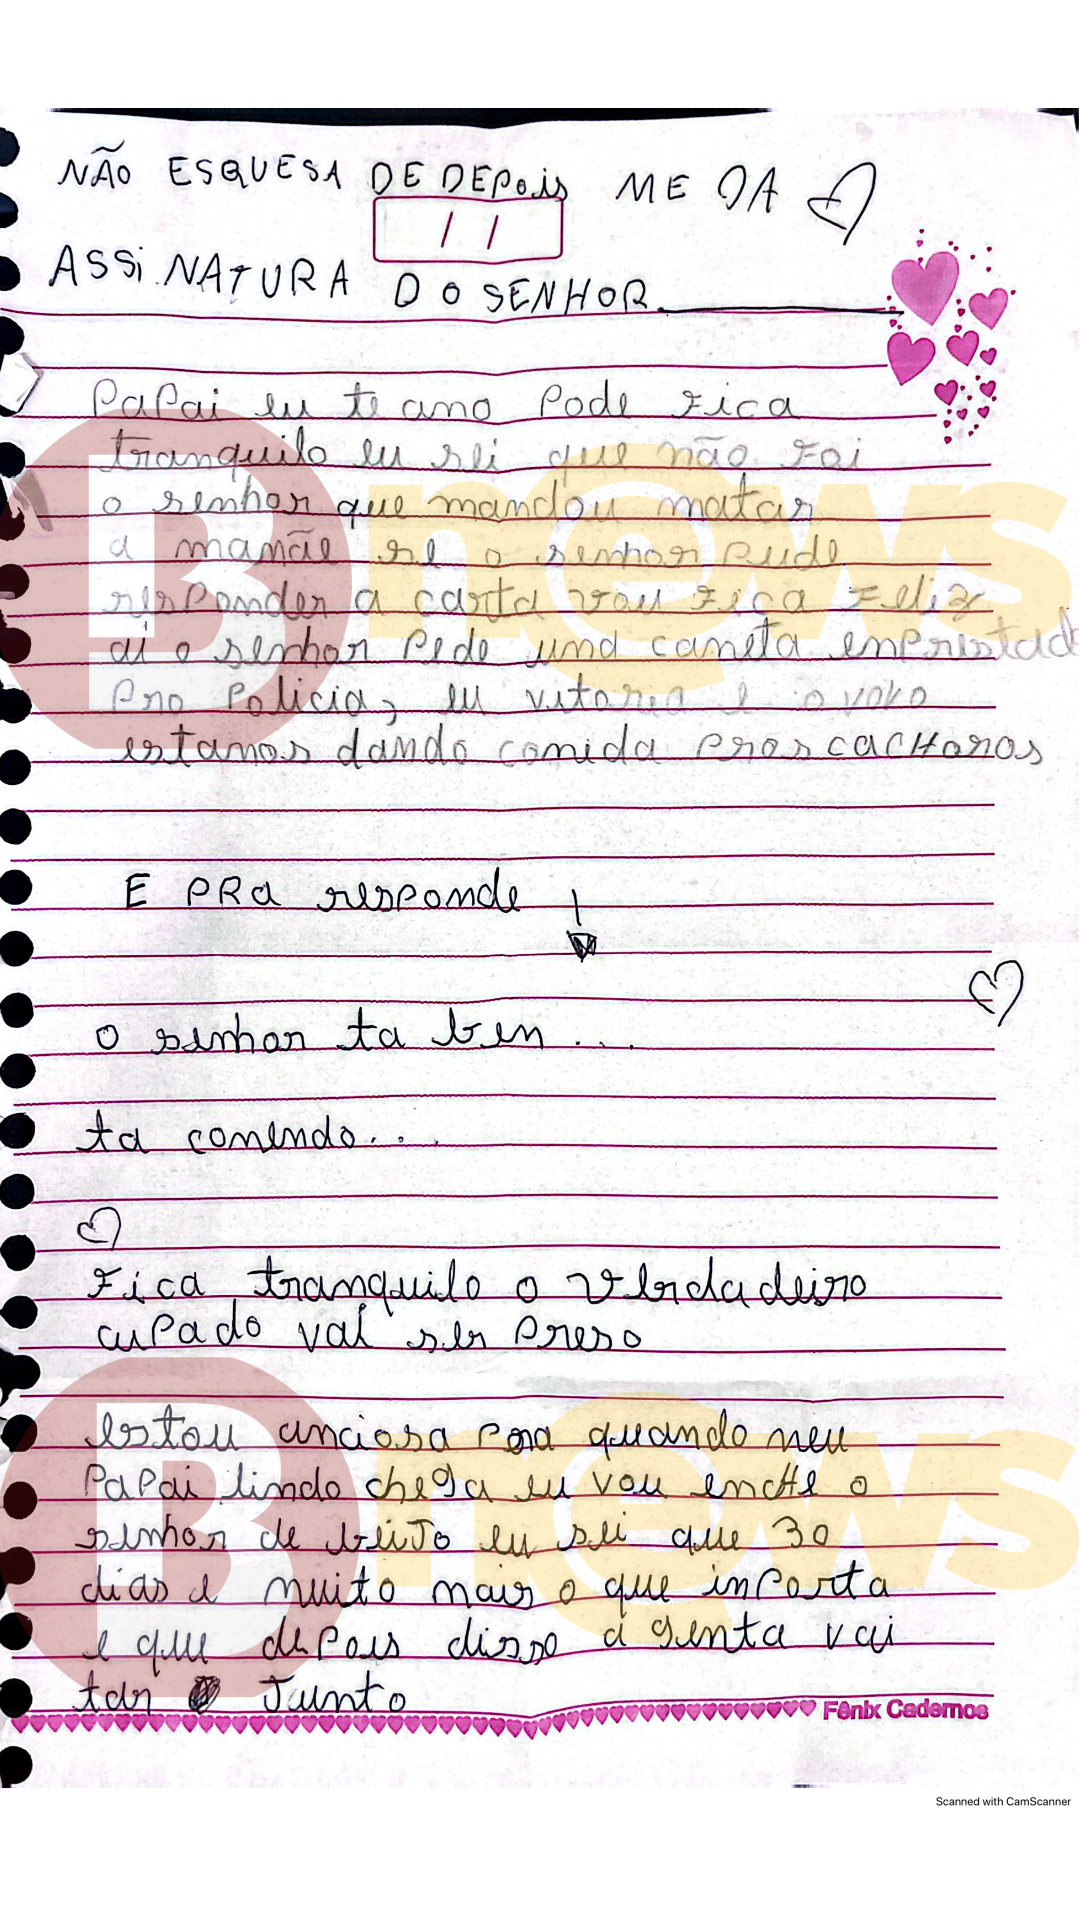 NÃO ESQUESA DE DEPOiS ME DA
/ /
ASSiNATURA DO SENHOR
PaPai eu te amo Pode Fica
tranquilo eu sei que não Foi
o senhor que mandou matar
a mamãe se o senhor Pude
resPonder a carta vou Fica Feliz
ai o senhor Pede uma caneta emPrestada
Pro Policia, eu vitoria e o vovo
estamos dando comida Pros cacHoros
E PRa resPonde
o senhor ta bem ...
ta comendo...
Fica tranquilo o verdadeiro
cuPado vai ser Preso
estou anciosa Pra quando meu
PaPai lindo chega eu vou encHe o
senhor de beiJo eu sei que 30
dias e muito mais o que imPorta
e que dePois disso a genta vai
tar Junto
Fênix Cadernos
Bnews
Bnews
Scanned with CamScanner